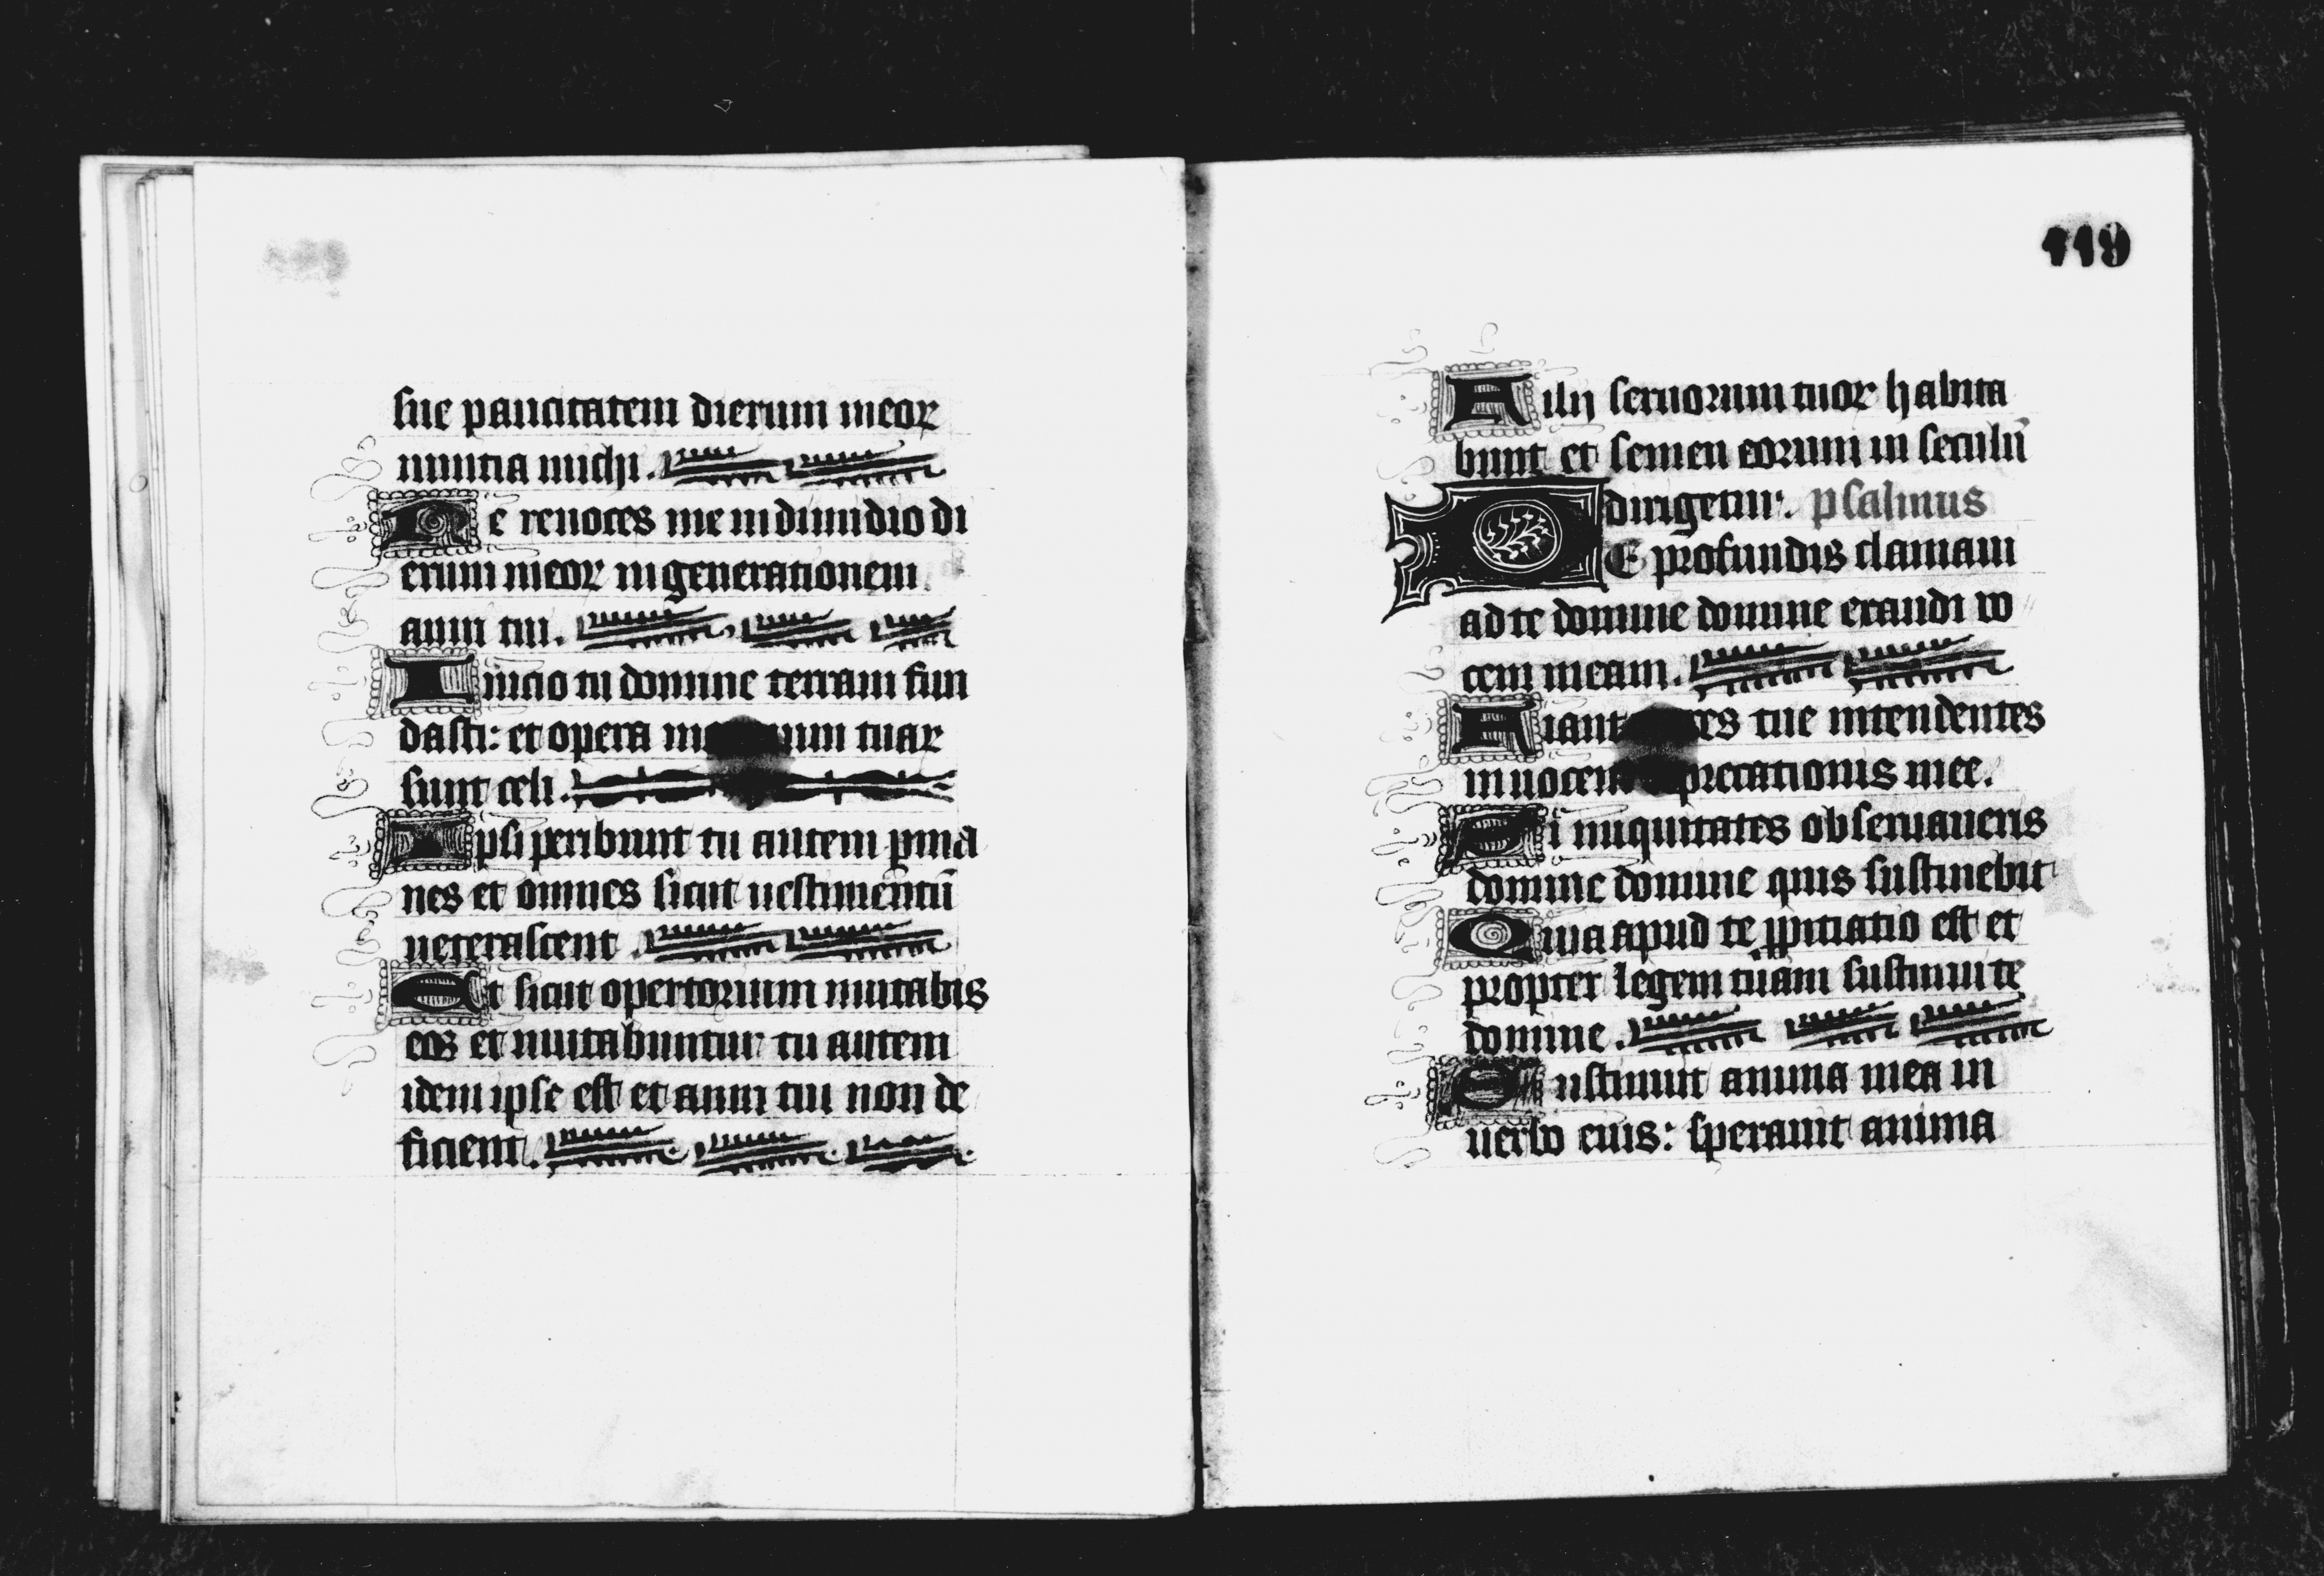 sue paucitatem dierum meoꝝ
nuntia michi.
Ne reuoces me in dimidio di
erum meoꝝ in generationem
anni tui.
Inicio tu domine terram fun
dasti: et opera tuaꝝ
sunt celi.
Ipsi peribunt tu autem ꝑma
nes et omnes sicut uestimentū
ueterascent.
Et sicut opertorium mutabis
eos et mutabuntur tu autem
idem ipse est et anni tui non de
ficient.
119
Filij seruorum tuoꝝ habita
bunt et semen eorum in seculū
dirigetur. psalmus
DE profundis clamaui
ad te domine domine exaudi uo
cem meam.
Fiant tue intendentes
in uocem deprecationis mee.
Si iniquitates obseruaueris
domine domine quis sustinebit
Quia apud te ꝓpitiatio est et
propter legem tuam sustinui te
domine.
Sustinuit anima mea in
uerbo eius: sperauit anima